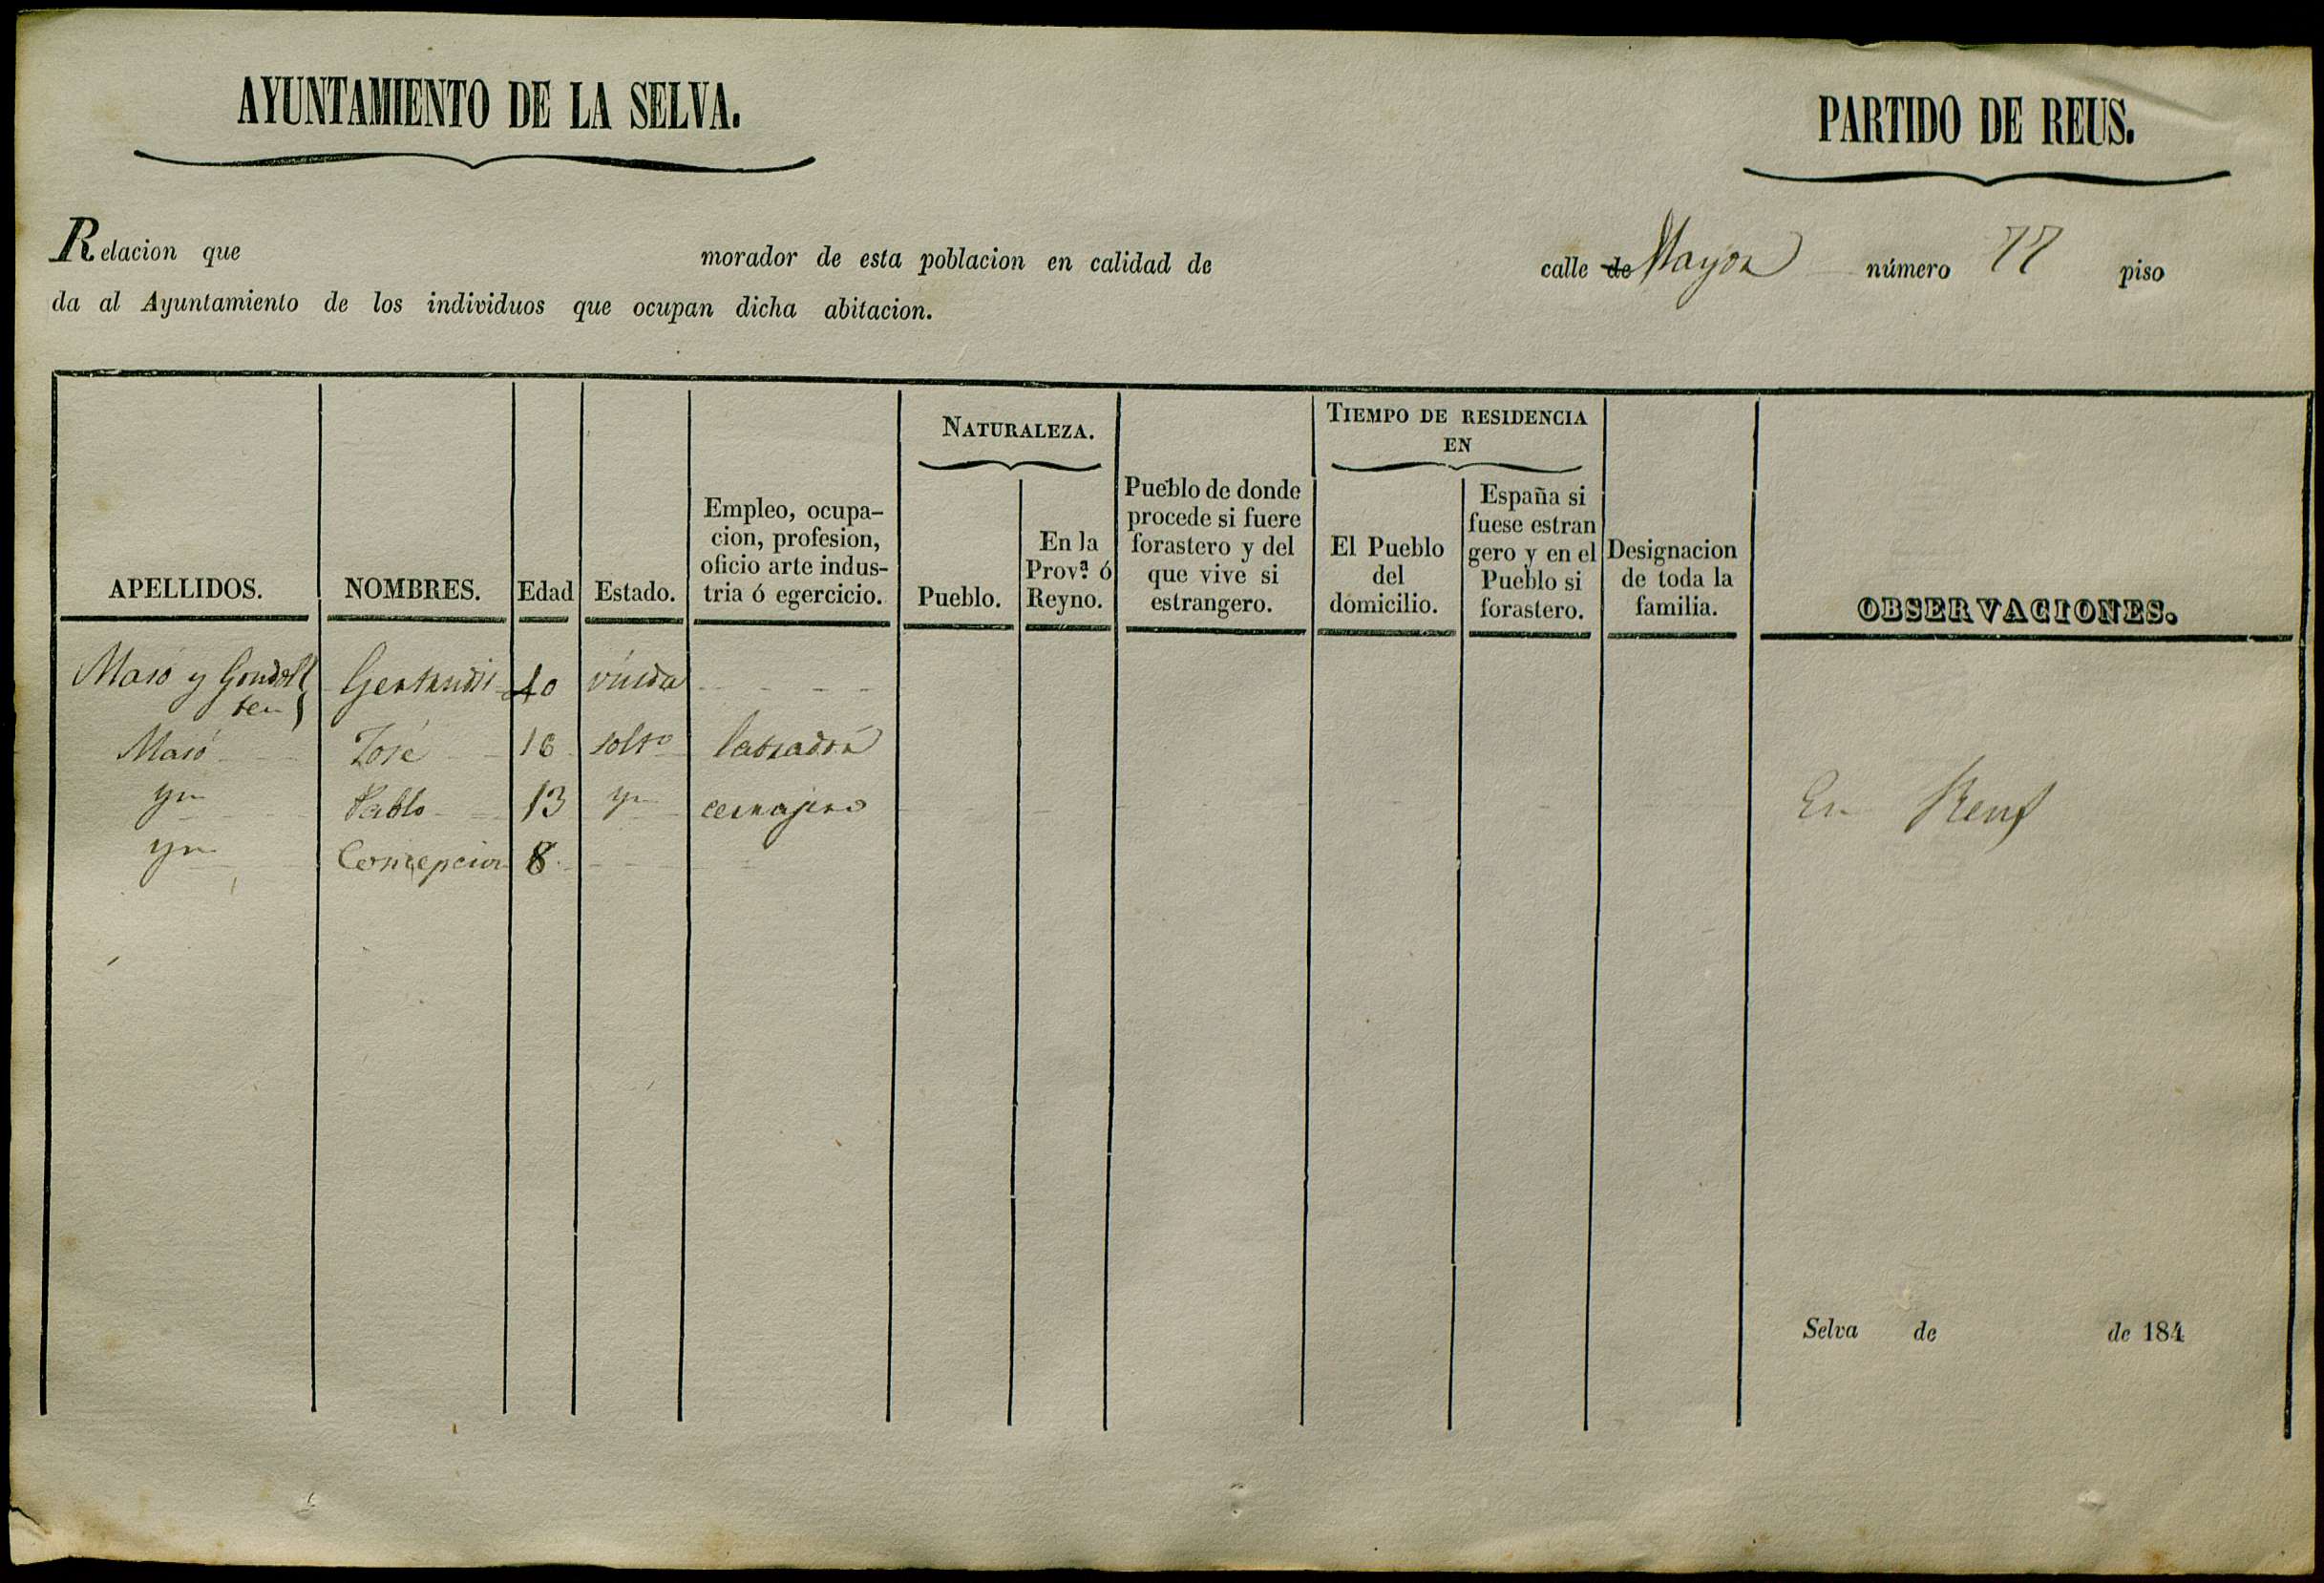 AYUNTAMIENTO DE LA SELVA.
PARTIDO DE REUS.
Relacion que morador de esta poblacion en calidad de calle de Mayor número 77 piso
da al Ayuntamiento de los individuos que ocupan dicha abitacion.
APELLIDOS.
NOMBRES.
Edad
Estado.
Empleo, ocupa-
cion, profesion,
oficio arte indus-
tria ó egercicio.
NATURALEZA.
Pueblo.
En la
Prov.ª ó
Reyno.
Pueblo de donde
procede si fuere
forastero y del
que vive si
estrangero.
TIEMPO DE RESIDENCIA
EN
El Pueblo
del
domicilio.
España si
fuese estran
gero y en el
Pueblo si
forastero.
Designacion
de toda la
familia.
OBSERVACIONES.
Masó y Gertrudis 40 viuda
Masó José 16 solt.º labrador
yn Pablo 13 yn cerrajero En Reus
yn Concepcion 8
Selva de de 184